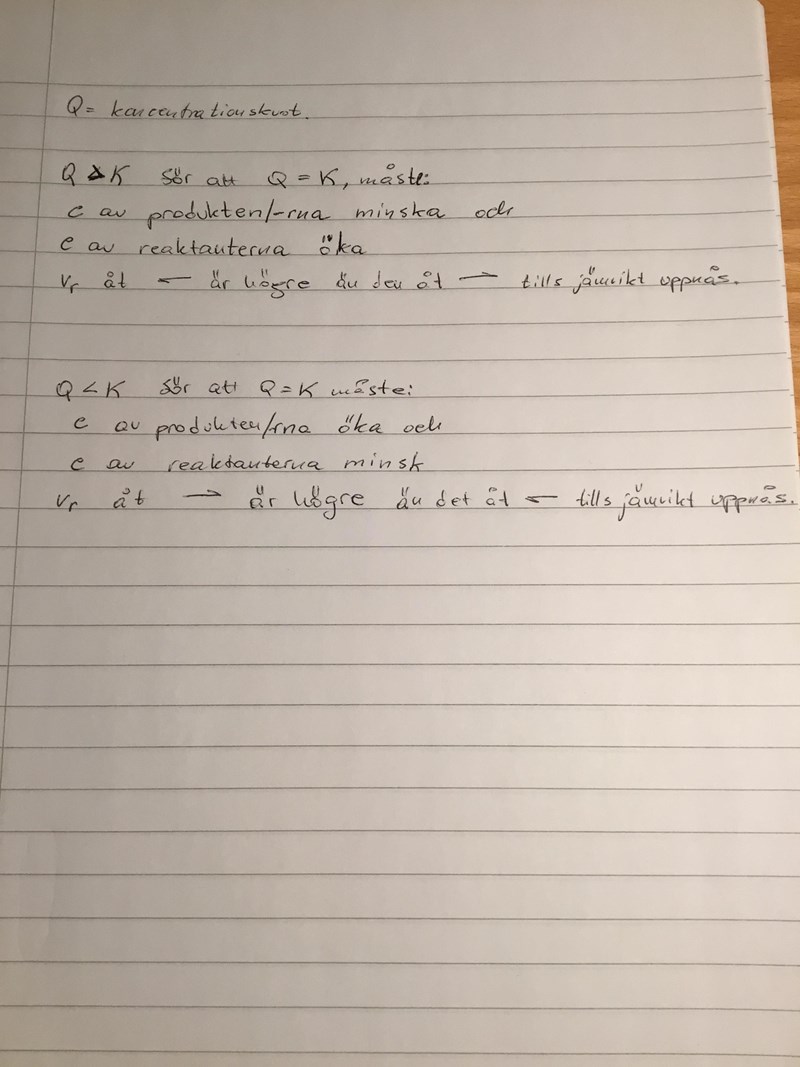 Q = koncentrationskvot.
Q > K för att Q = K, måste:
c av produkten/-rna minska och
c av reaktanterna öka
vr åt ← är högre än den åt → tills jämvikt uppnås.
Q < K för att Q = K måste:
c av produkten/rna öka och
c av reaktanterna minsk
vr åt → är högre än det åt ← tills jämvikt uppnås.